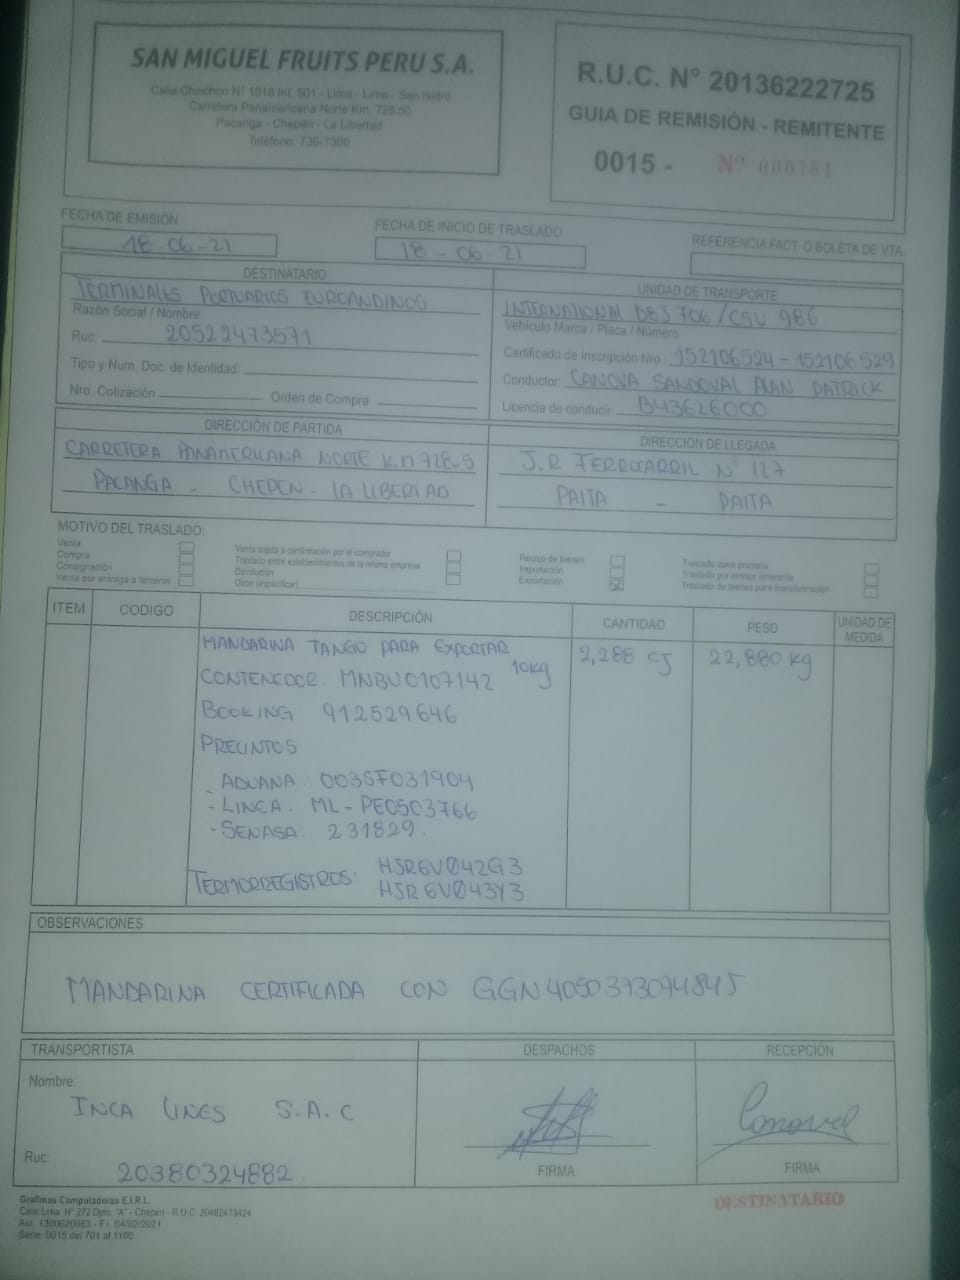 SAN MIGUEL FRUITS PERU S.A.
Calle Chinchon N° 1018 Int. 501 - Lima - Lima - San Isidro
Carretera Panamericana Norte Km. 728.50
Pacanga - Chepén - La Libertad
Teléfono: 730-7300
R.U.C. N° 20136222725
GUIA DE REMISIÓN - REMITENTE
0015 - Nº 000781
FECHA DE EMISIÓN
18-06-21
FECHA DE INICIO DE TRASLADO
18-06-21
REFERENCIA FACT. O BOLETA DE VTA.
DESTINATARIO
TERMINALES PORTUARIOS EUROANDINOS
Razón Social / Nombre
Ruc. 20522473571
Tipo y Num. Doc. de Identidad:
Nro. Cotización
Orden de Compra
UNIDAD DE TRANSPORTE
INTERNATIONAL D8J 706 / C5U 986
Vehículo Marca / Placa / Número
Certificado de Inscripción Nro.: 152106524-152106529
Conductor: CANOVA SANDOVAL ALAN PATRICK
Licencia de conducir: B43626000
DIRECCIÓN DE PARTIDA
CARRETERA PANAMERICANA NORTE K.M 728.5
PACANGA - CHEPEN - LA LIBERTAD
DIRECCIÓN DE LLEGADA
J.R FERROCARRIL N° 127
PAITA - PAITA
MOTIVO DEL TRASLADO:
Venta
Compra
Consignación
Venta por entrega a terceros
Venta sujeta a confirmación por el comprador
Traslado entre establecimientos de la misma empresa
Devolución
Otros (especificar)
Recojo de bienes
Importación
Exportación
Traslado zona primaria
Traslado por emisor itinerante
Traslado de bienes para transformación
ITEM CODIGO DESCRIPCIÓN CANTIDAD PESO UNIDAD DE MEDIDA
MANDARINA TANGO PARA EXPORTAR 10kg 2,288 CJ 22,880 kg
CONTENEDOR: MNBU0107142
BOOKING 912529646
PRECINTOS
- ADUANA: 003SF031904
- LINEA: ML-PE0503766
- SENASA: 231829.
TERMORREGISTROS: HJR6V042G3
HJR6V043Y3
OBSERVACIONES
MANDARINA CERTIFICADA CON GGN 4050373074845
TRANSPORTISTA
Nombre:
INCA LINES S.A.C
Ruc:
20380324882
DESPACHOS
FIRMA
RECEPCIÓN
FIRMA
Grafimas Computadoras E.I.R.L.
Calle Lima N° 272 Dpto. "A" - Chepén - R.U.C. 20482473424
Aut. 1300620063 - F.I. 04/02/2021
Serie: 0015 del 701 al 1100
DESTINATARIO